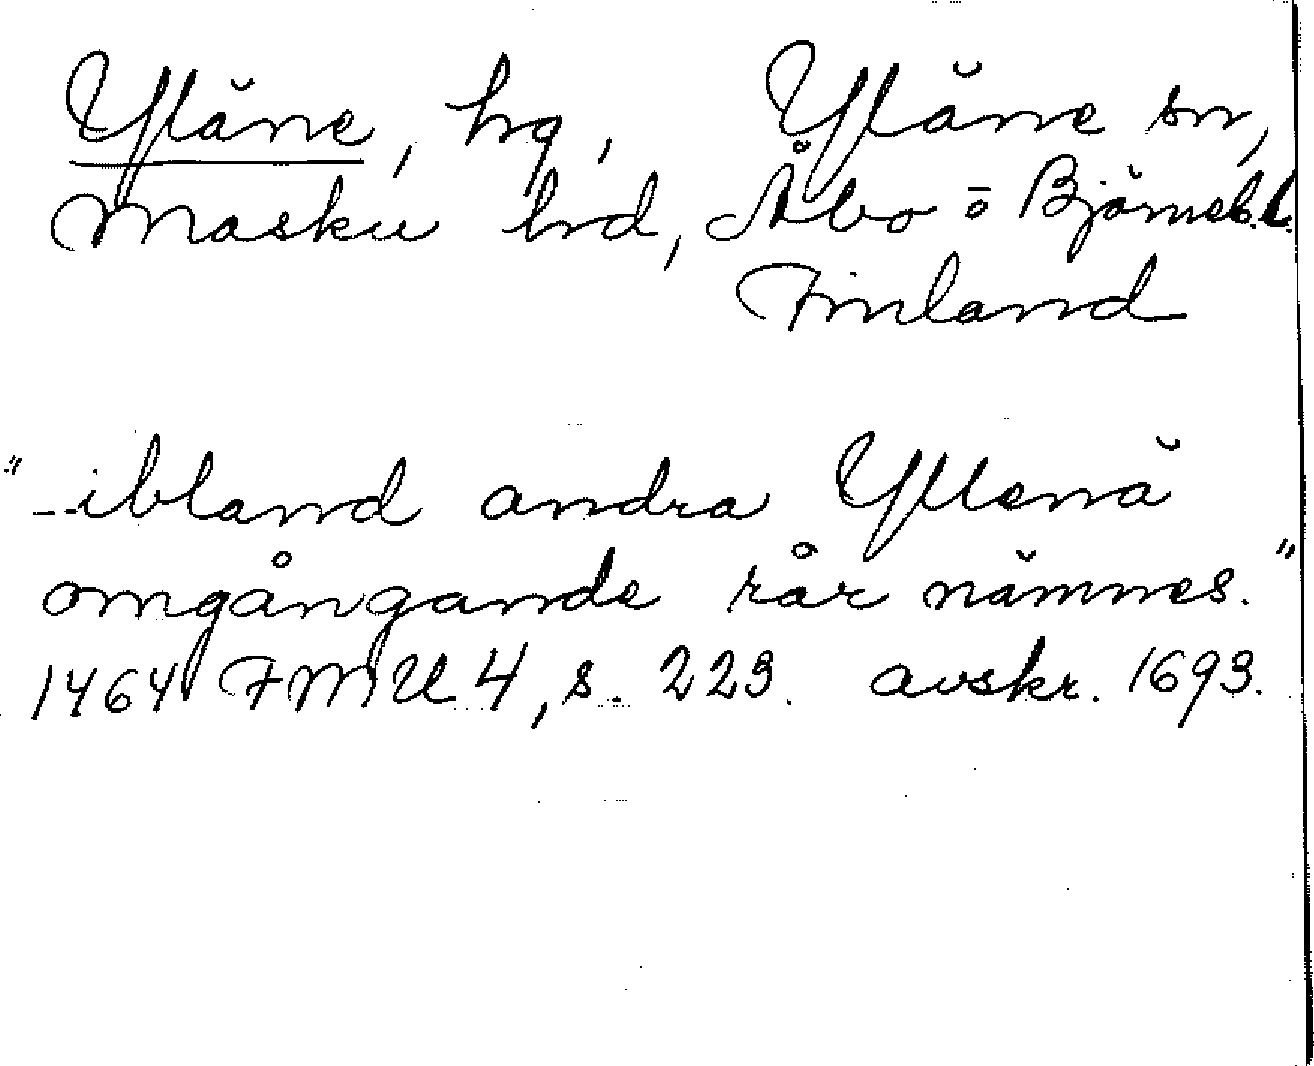 Yläne, hg, Yläne sn,
Masku hd, Åbo o Björneb. l.
Finland
"--ibland andra Yllenä
omgångande rår nämnes."
1464 FMU 4, s. 223. avskr. 1693.